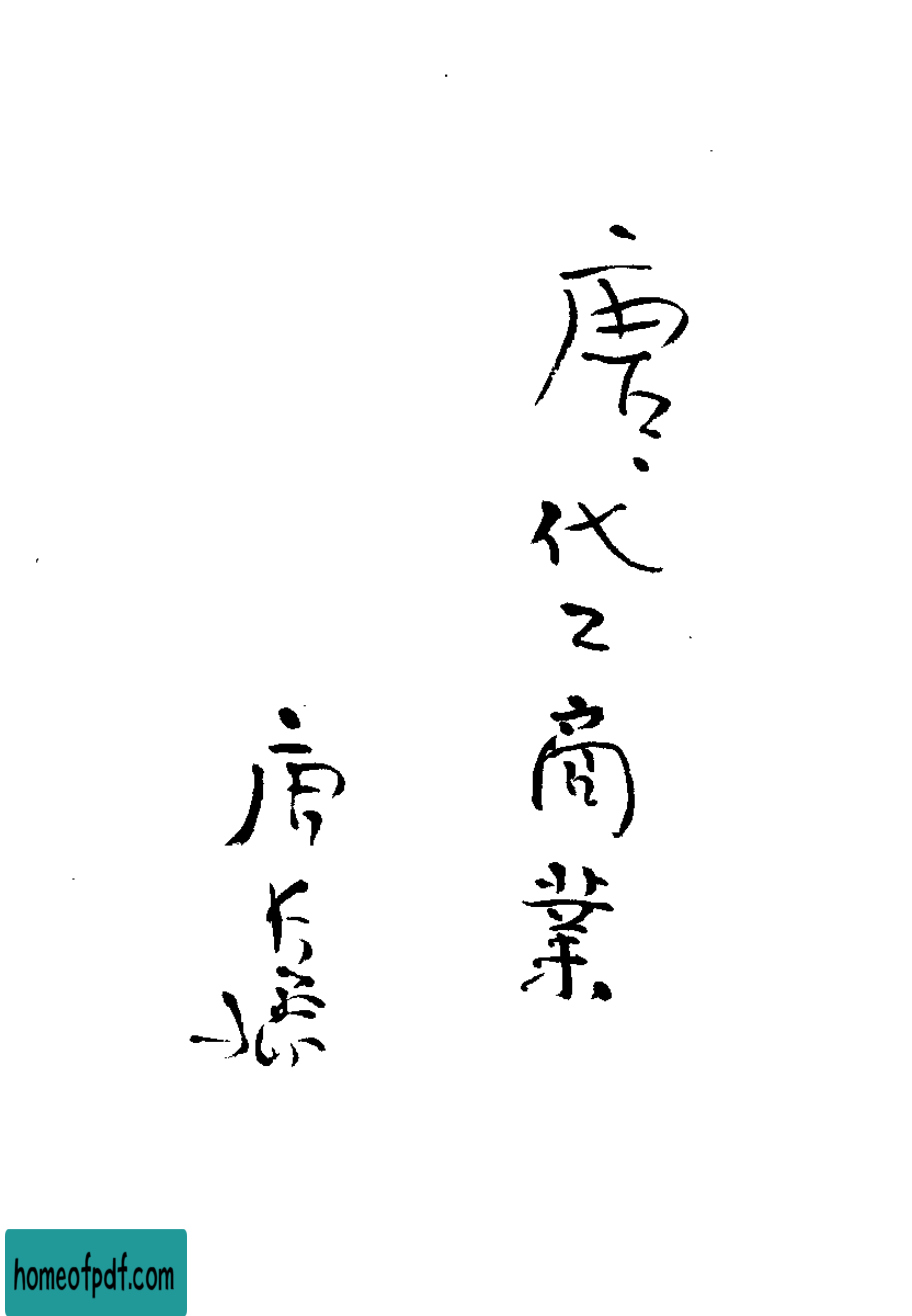 唐代工商業
唐长孺
homeofpdf.com